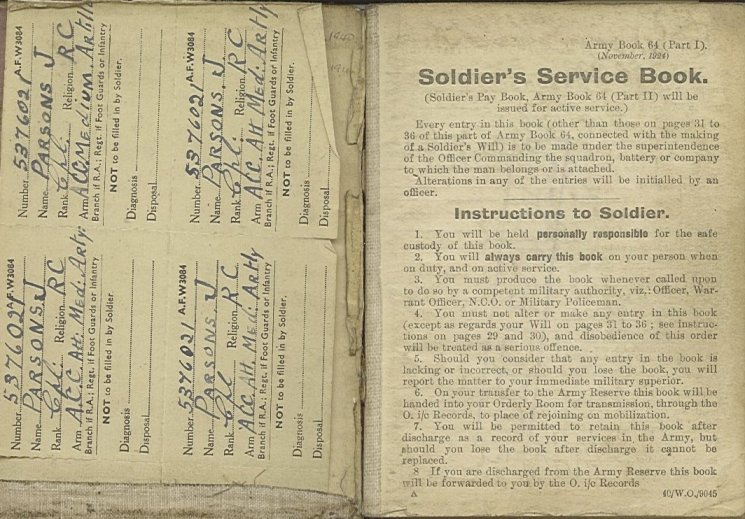 Number 5376021 A.F.W3084
Name PARSONS J
Rank Cpl. Religion RC
Arm ACC Medium. Artill
Branch if R.A.; Regt. if Foot Guards or Infantry
NOT to be filled in by Soldier.
Diagnosis
Disposal
Number 5376021 A.F.W3084
Name PARSONS. J
Rank Cpl. Religion RC
Arm A.C.C. Att Med: Artly
Branch if R.A.; Regt. if Foot Guards or Infantry
NOT to be filled in by Soldier.
Diagnosis
Disposal
Number 5376021 A.F.W3084
Name PARSONS. J
Rank Cpl. Religion RC
Arm A.C.C. Att. Med. Arty.
Branch if R.A.; Regt. if Foot Guards or Infantry
NOT to be filled in by Soldier.
Diagnosis
Disposal
Number 5376021 A.F.W3084
Name PARSONS. J
Rank Cpl Religion RC
Arm ACC. Att. Med: Artly
Branch if R.A.; Regt. if Foot Guards or Infantry
NOT to be filled in by Soldier.
Diagnosis
Disposal
Army Book 64 (Part I).
(November, 1924)
Soldier's Service Book.
(Soldier's Pay Book, Army Book 64 (Part II) will be
issued for active service.)
Every entry in this book (other than those on pages 31 to
36 of this part of Army Book 64, connected with the making
of a Soldier's Will) is to be made under the superintendence
of the Officer Commanding the squadron, battery or company
to which the man belongs or is attached.
Alterations in any of the entries will be initialled by an
officer.
Instructions to Soldier.
1. You will be held personally responsible for the safe
custody of this book.
2. You will always carry this book on your person when
on duty, and on active service.
3. You must produce the book whenever called upon
to do so by a competent military authority, viz.: Officer, War-
rant Officer, N.C.O. or Military Policeman.
4. You must not alter or make any entry in this book
(except as regards your Will on pages 31 to 36; see instruc-
tions on pages 29 and 30), and disobedience of this order
will be treated as a serious offence.
5. Should you consider that any entry in the book is
lacking or incorrect, or should you lose the book, you will
report the matter to your immediate military superior.
6. On your transfer to the Army Reserve this book will be
handed into your Orderly Room for transmission, through the
O. i/c Records, to place of rejoining on mobilization.
7. You will be permitted to retain this book after
discharge as a record of your services in the Army, but
should you lose the book after discharge it cannot be
replaced.
8 If you are discharged from the Army Reserve this book
will be forwarded to you by the O. i/c Records
A 40/W.O./9045